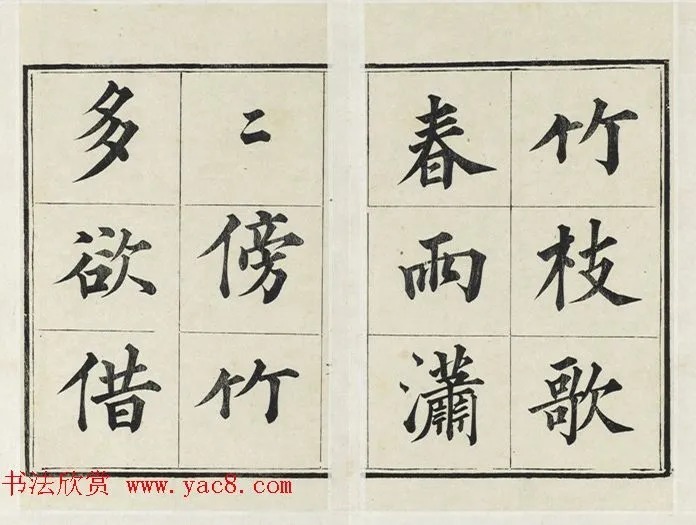 竹枝歌
春雨瀟
〻傍竹
多欲借
书法欣赏 www.yac8.com